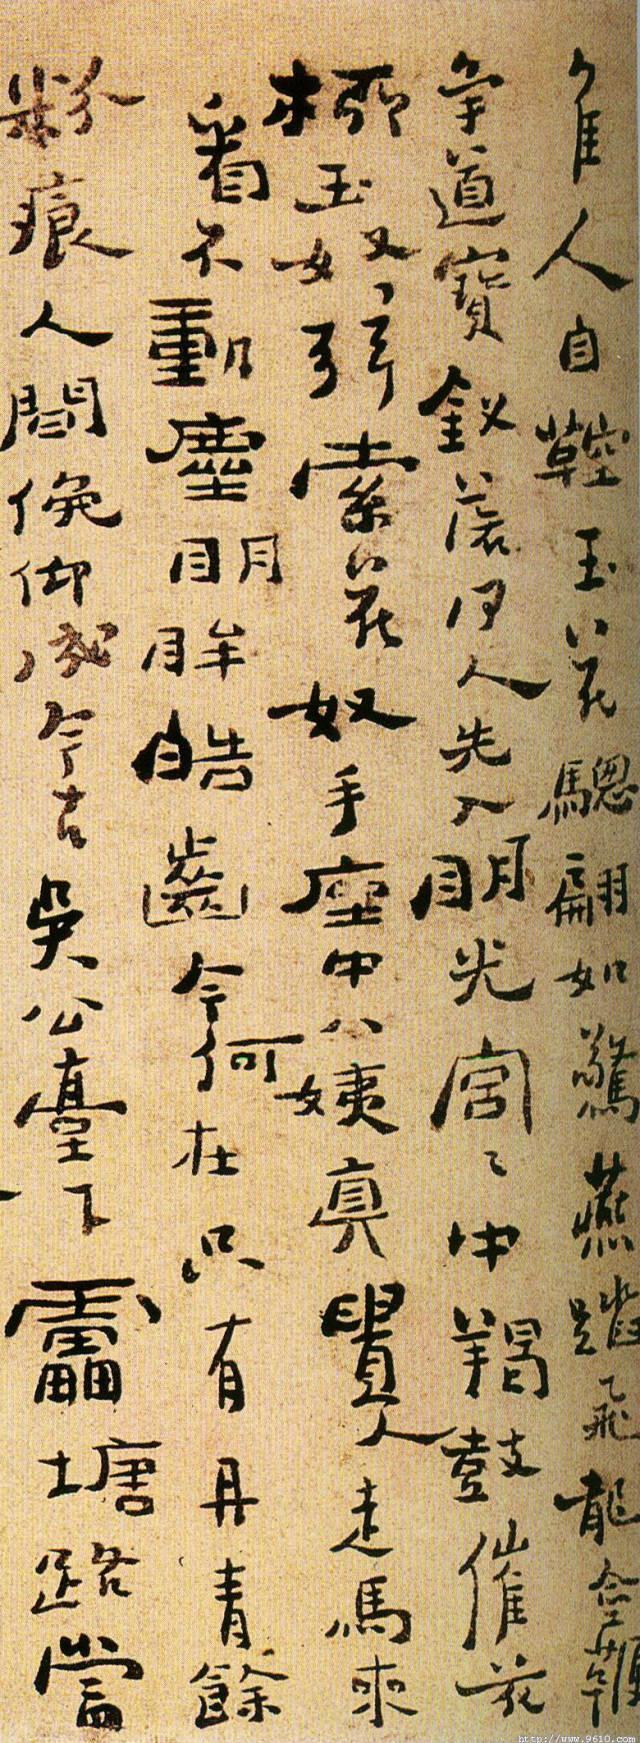 佳人自鞚玉花驄翩如驚燕蹋飛龍金鞭
爭道寶釵落何人先入明光宮〻中羯鼓催花
柳玉奴弦索花奴手座中八姨真貴人走馬來
看不動塵明眸皓齒今何在只有丹青餘
粉痕人間俛仰成今古吳公臺下靁塘路當
http://www.9610.com